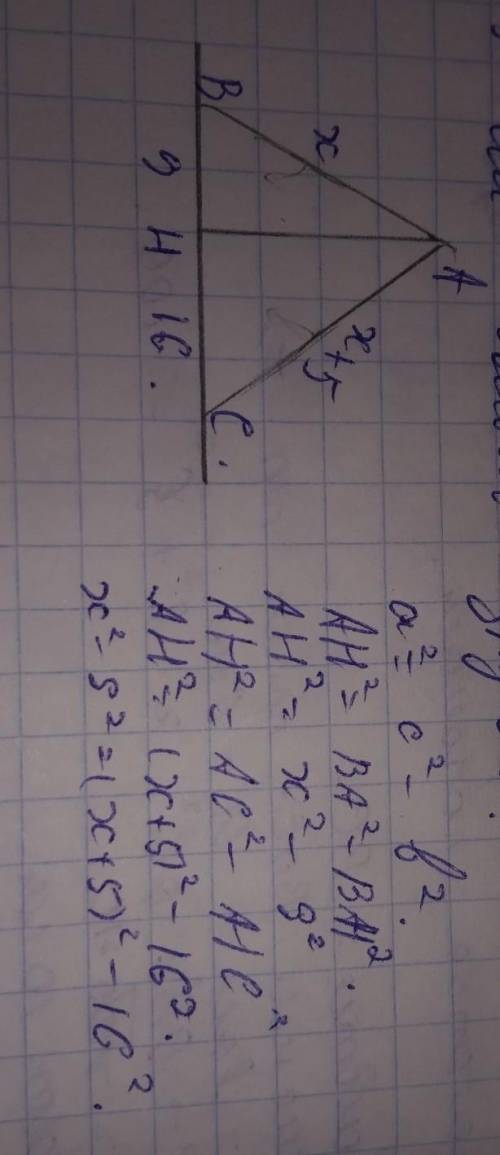 A
x
x+5
B
9
H
16.
C.
a² = c² - b².
AH² = BA² - BH².
AH² = x² - 9²
AH² = AC² - HC²
AH² = (x+5)² - 16².
x² - 9² = (x+5)² - 16².